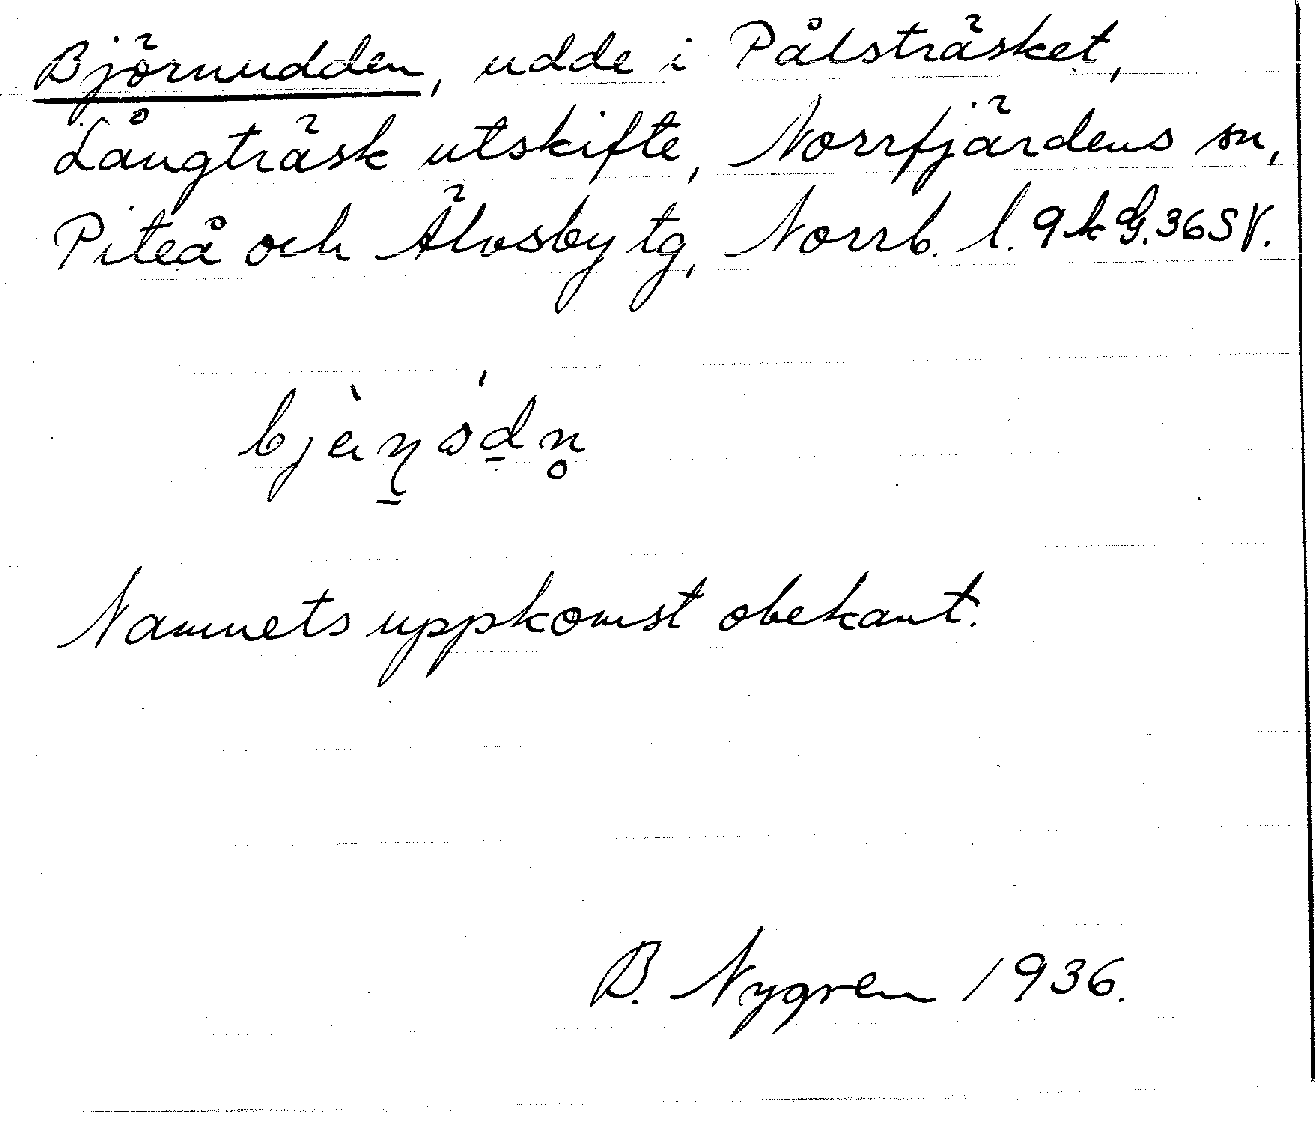 Björnudden, udde i Pålsträsket,
Långträsk utskifte, Norrfjärdens sn,
Piteå och Älvsby tg, Norrb. l. 9kG.36SV.
Namnets uppkomst obekant.
B. Nygren 1936.